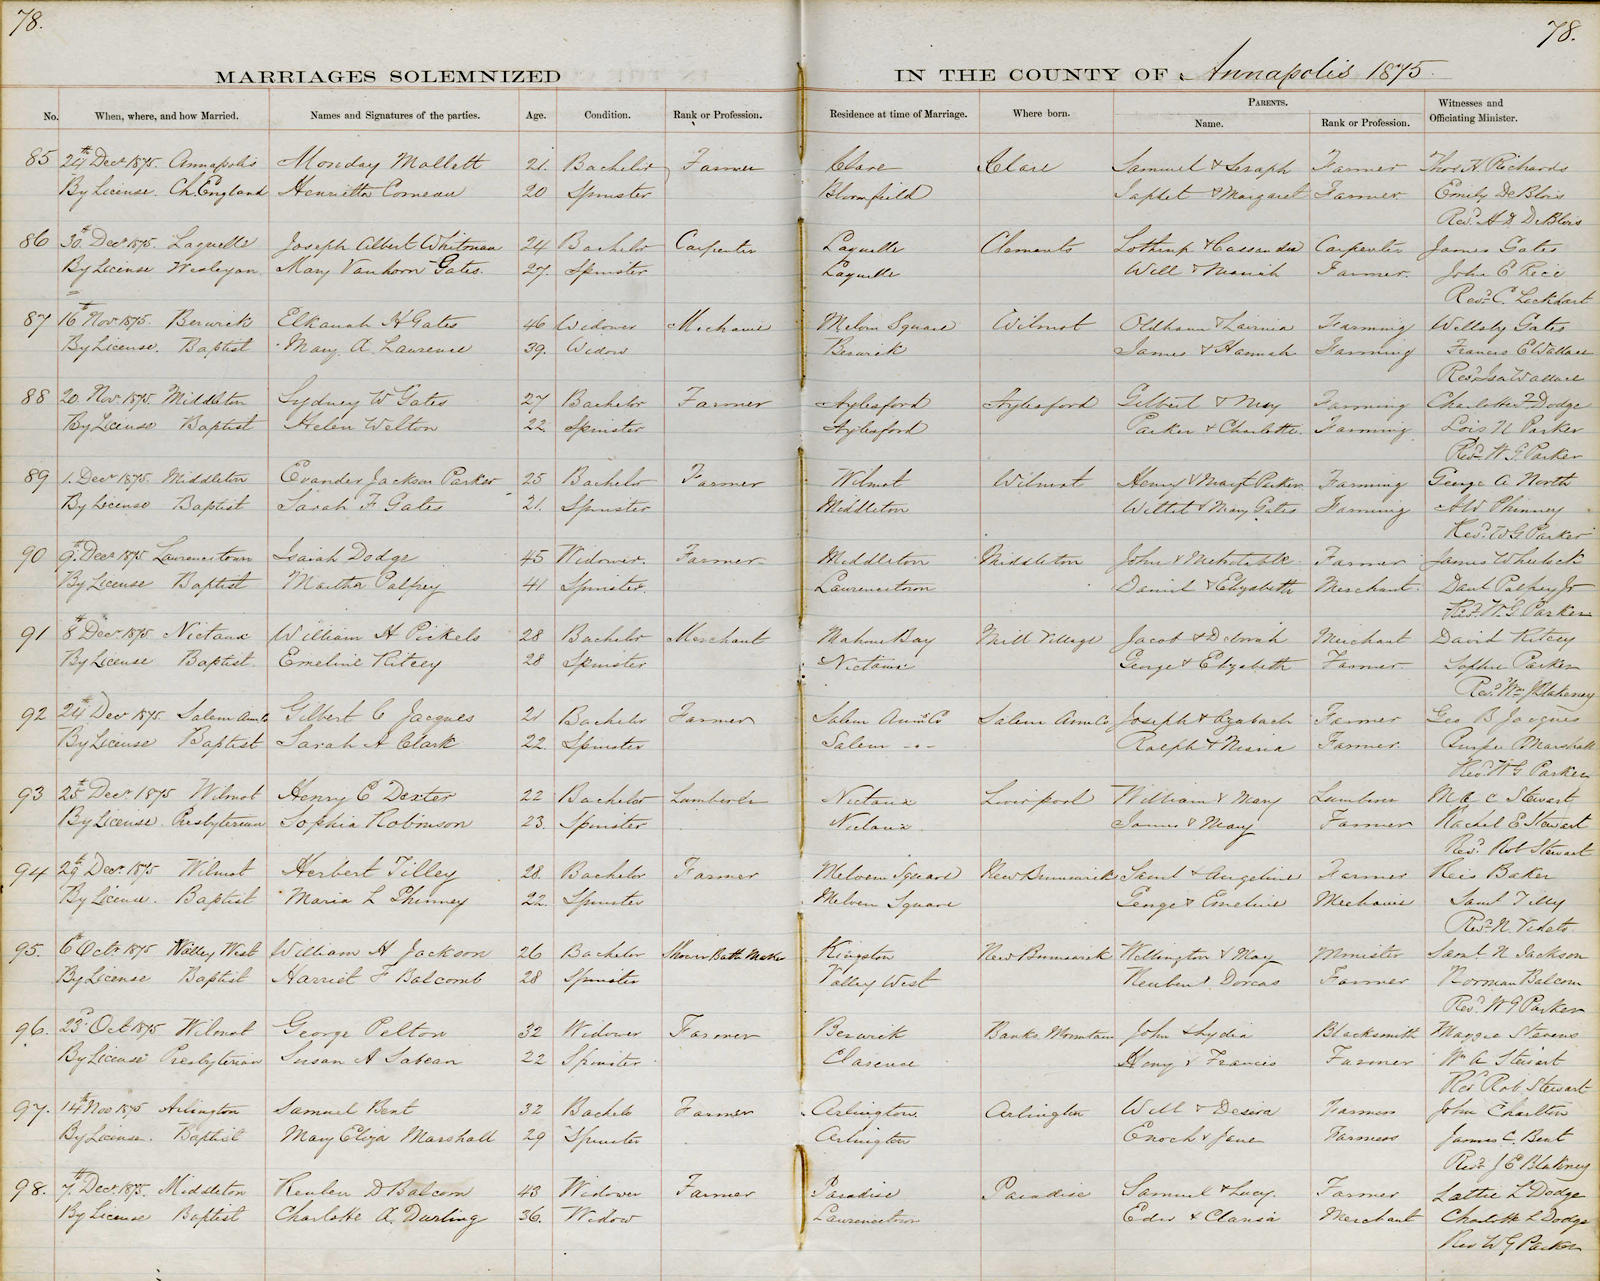 78. 78.
MARRIAGES SOLEMNIZED IN THE COUNTY OF Annapolis 1875.
PARENTS.
No. When, where, and how Married. Names and Signatures of the parties. Age. Condition. Rank or Profession. Residence at time of Marriage. Where born. Name. Rank or Profession. Witnesses and Officiating Minister.
85 24th Decr 1875. Annapolis Monday Mallett 21. Bachelor Farmer Clare Clare Samuel & Seraph Farmer Thos H. Richards
By License. Ch. England Henrietta Comeau 20 Spinster Bloomfield Japhet & Margaret Farmer Emily DeBlois
Revd. H D DeBlois
86 30th Decr 1875. Laquelle Joseph Albert Whitman 24 Bachelor Carpenter Laquelle Clements Lothrup & Cassandra Carpenter James Gates
By License Wesleyan Mary Vanhorn Gates. 27. Spinster Laquelle Will & Mariah Farmer. John E Rice
Revd. C. Lockhart
87 16th Nov 1875. Berwick Elkanah H Gates 46 Widower Mechanic Melvin Square Wilmot Oldham & Lavinia Farming Wellsby Gates
By License. Baptist Mary A Lawrence 39. Widow Berwick James & Hannah Farming Francis E Wallace
Revd Isa Wallace
88 20 Nov. 1875. Middleton Sydney W Gates 27 Bachelor Farmer Aylesford Aylesford Gilbert & May Farming Charlotte Dodge
By License Baptist Helen Welton 22 Spinster Aylesford Parker & Charlotte. Farming Lois N Parker
Revd. W G Parker
89 1. Decr 1875. Middleton Evander Jackson Parker 25 Bachelor Farmer Wilmot Wilmot Henry & Mary Parker Farming George A North
By License Baptist Sarah F Gates 21. Spinster Middleton Willet & Mary Gates Farming AW Phinney
Revd. W G Parker
90 9th Decr 1875 Lawrencetown Isaiah Dodge 45 Widower. Farmer Middleton Middleton John & Mehetable Farmer James Wheelock
By License Baptist Martha Palfrey 41 Spinster. Lawrencetown Daniel & Elizabeth Merchant. Danl Palfrey Jr
Revd. W. G Parker
91 8th Decr 1875 Nictaux William H Pickels 28 Bachelor Merchant Mahone Bay Mill Village Jacob & Deborah Merchant David Ritcey
By License Baptist. Emeline Ritcey 28 Spinster Nictaux George & Elizabeth Farmer Sophie Parker
Revd. Wm J Blakeney
92 24th Decr 1875. Salem Ann Co Gilbert C Jacques 21 Bachelor Farmer Salem Ann Co Salem Ann Co Joseph & Azubach Farmer Geo B Jacques
By License Baptist Sarah A Clark 22. Spinster Salem Ralph & Maria Farmer. Marshall
Revd. W G Parker
93 25th Decr 1875 Wilmot Henry C Dexter 22 Bachelor Nictaux Liverpool William & Mary Stewart
By License. Presbyterian Sophia Robinson 23. Spinster Nictaux James & Mary Farmer Rachel E Stewart
Revd. Rob Stewart
94 29th Decr. 1875 Wilmot Herbert Tilley 28. Bachelor Farmer Melvern Square New Brunswick Saml & Angeline Farmer Reis Baker
By License. Baptist Maria L Phinney 22. Spinster Melvern Square George & Emeline Mechanic Saml Tilly
Revd. N Videto.
95. 6th Octr 1875 Valley West William H Jackson 26 Bachelor Shower Bath Maker Kingston New Brunswick Wellington & May Minister Saml N Jackson
By License Baptist Harriet F Balcomb 28 Spinster Valley West Reuben & Dorcas Farmer Norman Balcom
Revd. W G Parker
96. 23d Oct 1875 Wilmot George Pelton 32 Widower Farmer Berwick Banks Mountain John & Lydia Blacksmith Maggie Stevens
By License Presbyterian Susan A Sabean 22 Spinster Clarence Henry & Francis Farmer Wm A Stewart
Revd Rob Stewart
97. 14th Nov 1875 Arlington Samuel Bent 32 Bachelor Farmer Arlington. Arlington Will & Desira Farmers John Charlton
By License. Baptist Mary Eliza Marshall 29 Spinster Arlington Enoch & Jane Farmers James C. Bent
Revd. J E Blakney
98. 7th Decr. 1875. Middleton Reuben D Balcom 43 Widower Farmer Paradise Paradise Samuel & Lucy. Farmer Lattie L Dodge
By License Baptist Charlotte A. Durling 36. Widow Lawrencetown & Clarisa Merchant Charlotte L Dodge
Rev W G Parker